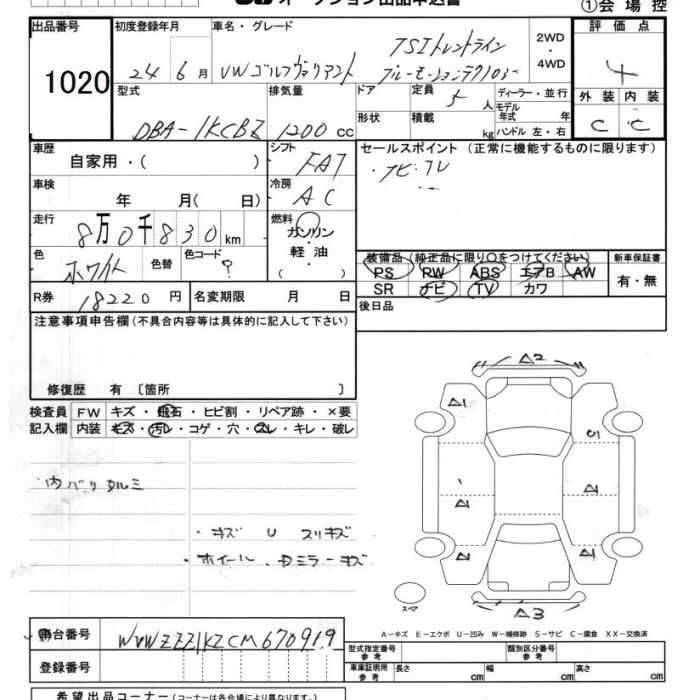 ①会場控
出品番号 初度登録年月 車名・グレード 2WD・4WD 評価点
1020 24年6月 VWゴルフヴァリアント TSIトレンドライン 4
ブルーモーションテクノロジー
型式 排気量 ドア 定員 5人 ディーラー・並行 外装 内装
DBA-1KCBZ 1200cc 形状 積載 kg モデル年式 年 C C
ハンドル 左・右
車歴 自家用・( ) シフト FAT セールスポイント (正常に機能するものに限ります)
・ナビ・TV
車検 年 月( 日) 冷房 AC
走行 8万0千830km 燃料 ガソリン・軽油・( )
色 ホワイト 色替 色コード ? 装備品 (純正品に限り○をつけてください) 新車保証書
PS PW ABS エアB AW 有・無
SR ナビ TV カワ
R券 18220円 名変期限 月 日 後日品
注意事項申告欄(不具合内容等は具体的に記入して下さい)
修復歴 有 〔箇所 〕
検査員 FW キズ・飛石・ヒビ割・リペア跡・×要
記入欄 内装 キズ・汚レ・コゲ・穴・スレ・キレ・破レ
内バリタルミ
・キズ U スリキズ
・ホイール、Dミラーキズ
A2
A1
U1
A1
A1
A1
A1
A3
スペア
A-キズ E-エクボ U-凹み W-補修跡 S-サビ C-腐食 XX-交換済
車台番号 WVWZZZ1KZCM670919
型式指定番号 参考 類別区分番号 参考
登録番号 車庫証明用 参考 長さ cm 幅 cm 高さ cm
希望出品コーナー (コーナーは各会場により異なります。)